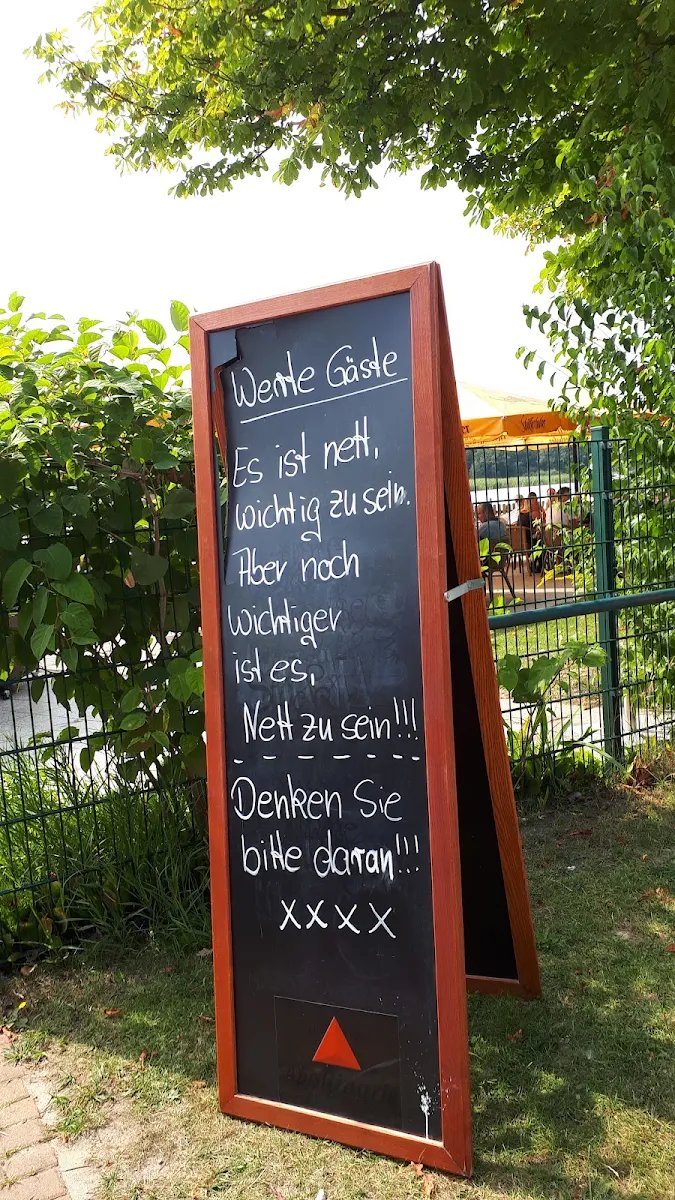 Werte Gäste
Es ist nett,
wichtig zu sein.
Aber noch
wichtiger
ist es,
Nett zu sein!!!
Denken Sie
bitte daran!!!
XXXX